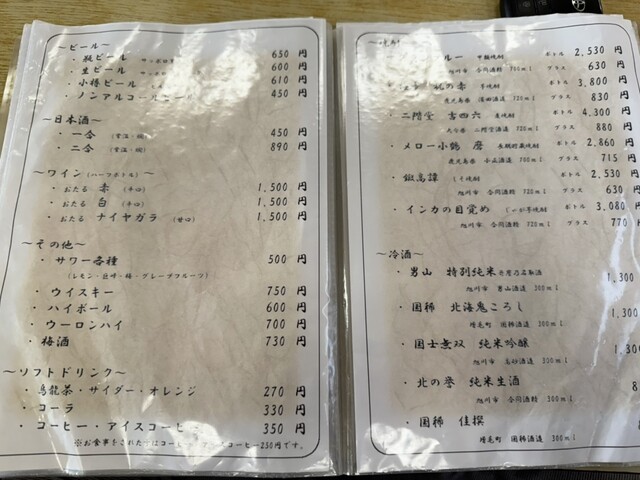 〜ビール〜
・瓶ビール サッポロ 630 円
・生ビール サッポロ 600 円
・小樽ビール 610 円
・ノンアルコールビール 450 円
〜日本酒〜
・一合 (常温・燗) 450 円
・二合 (常温・燗) 890 円
〜ワイン(ハーフボトル)〜
・おたる 赤 (辛口) 1,500 円
・おたる 白 (辛口) 1,500 円
・おたる ナイヤガラ (甘口) 1,500 円
〜その他〜
・サワー各種 500 円
(レモン・巨峰・梅・グレープフルーツ)
・ウイスキー 750 円
・ハイボール 600 円
・ウーロンハイ 700 円
・梅酒 730 円
〜ソフトドリンク〜
・烏龍茶・サイダー・オレンジ 270 円
・コーラ 330 円
・コーヒー・アイスコーヒー 350 円
※お食事をされた方はコーヒー・アイスコーヒー250円です。
ルー 甲類焼酎 ボトル 2,530 円
旭川市 合同酒精 700ml グラス 630 円
の赤 芋焼酎 ボトル 3,800 円
鹿児島県 濱田酒造 720ml グラス 830 円
・二階堂 吉四六 麦焼酎 ボトル 4,300 円
大分県 二階堂酒造 720ml グラス 880 円
・メロー小鶴 磨 長期貯蔵焼酎 ボトル 2,860 円
鹿児島県 小正酒造 720ml グラス 715 円
・鍛高譚 しそ焼酎 ボトル 2,530 円
旭川市 合同酒精 720ml グラス 630 円
・インカの目覚め じゃが芋焼酎 ボトル 3,080 円
旭川市 合同酒精 720ml グラス 770 円
〜冷酒〜
・男山 特別純米 1,300
旭川市 男山酒造 300ml
・国稀 北海鬼ころし 1,300
増毛町 国稀酒造 300ml
・国士無双 純米吟醸 1,300
旭川市 高砂酒造 300ml
・北の誉 純米生酒 8
旭川市 合同酒精 300ml
・国稀 佳撰
増毛町 国稀酒造 300ml